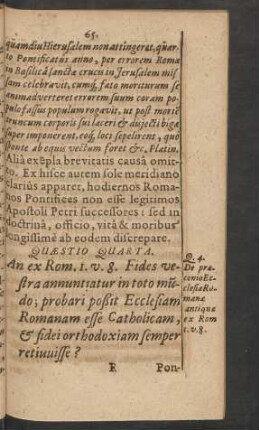 65.
quamdiu Hierusalem non attingeret, quar-
to Pontificatus anno, per errorem Romæ
in Basilicâ sanctæ crucis in Jerusalem mis-
sam celebravit, cumq, fato moriturum se
animadverteret errorem suum coram po-
pulo fassus populum rogavit, ut post morte
truncum corporis sui laceri & disjecti bigæ
super imponerent, eoq, loci sepelirent, quo
sponte ab equis vectum foret &c, Platin.
Alia exẽpla brevitatis causâ omit-
to. Ex hisce autem sole meridiano
clarius apparet, hodiernos Roma-
nos Pontifices non esse legitimos
Apostoli Petri successores: sed in
doctrinâ, officio, vitâ & moribus
longissimè ab eodem discrepare.
QUÆSTIO QUARTA.
An ex Rom. 1. v. 8. Fides ve-
stra annuntiatur in toto mũ-
do; probari poßit Ecclesiam
Romanam esse Catholicam,
& fidei orthodoxiam semper
retinuisse?
Q. 4.
De præ-
cenio Ec-
clesiæ Ro-
manæ
antiquæ
ex Rom
1. v. 8.
E Pon-